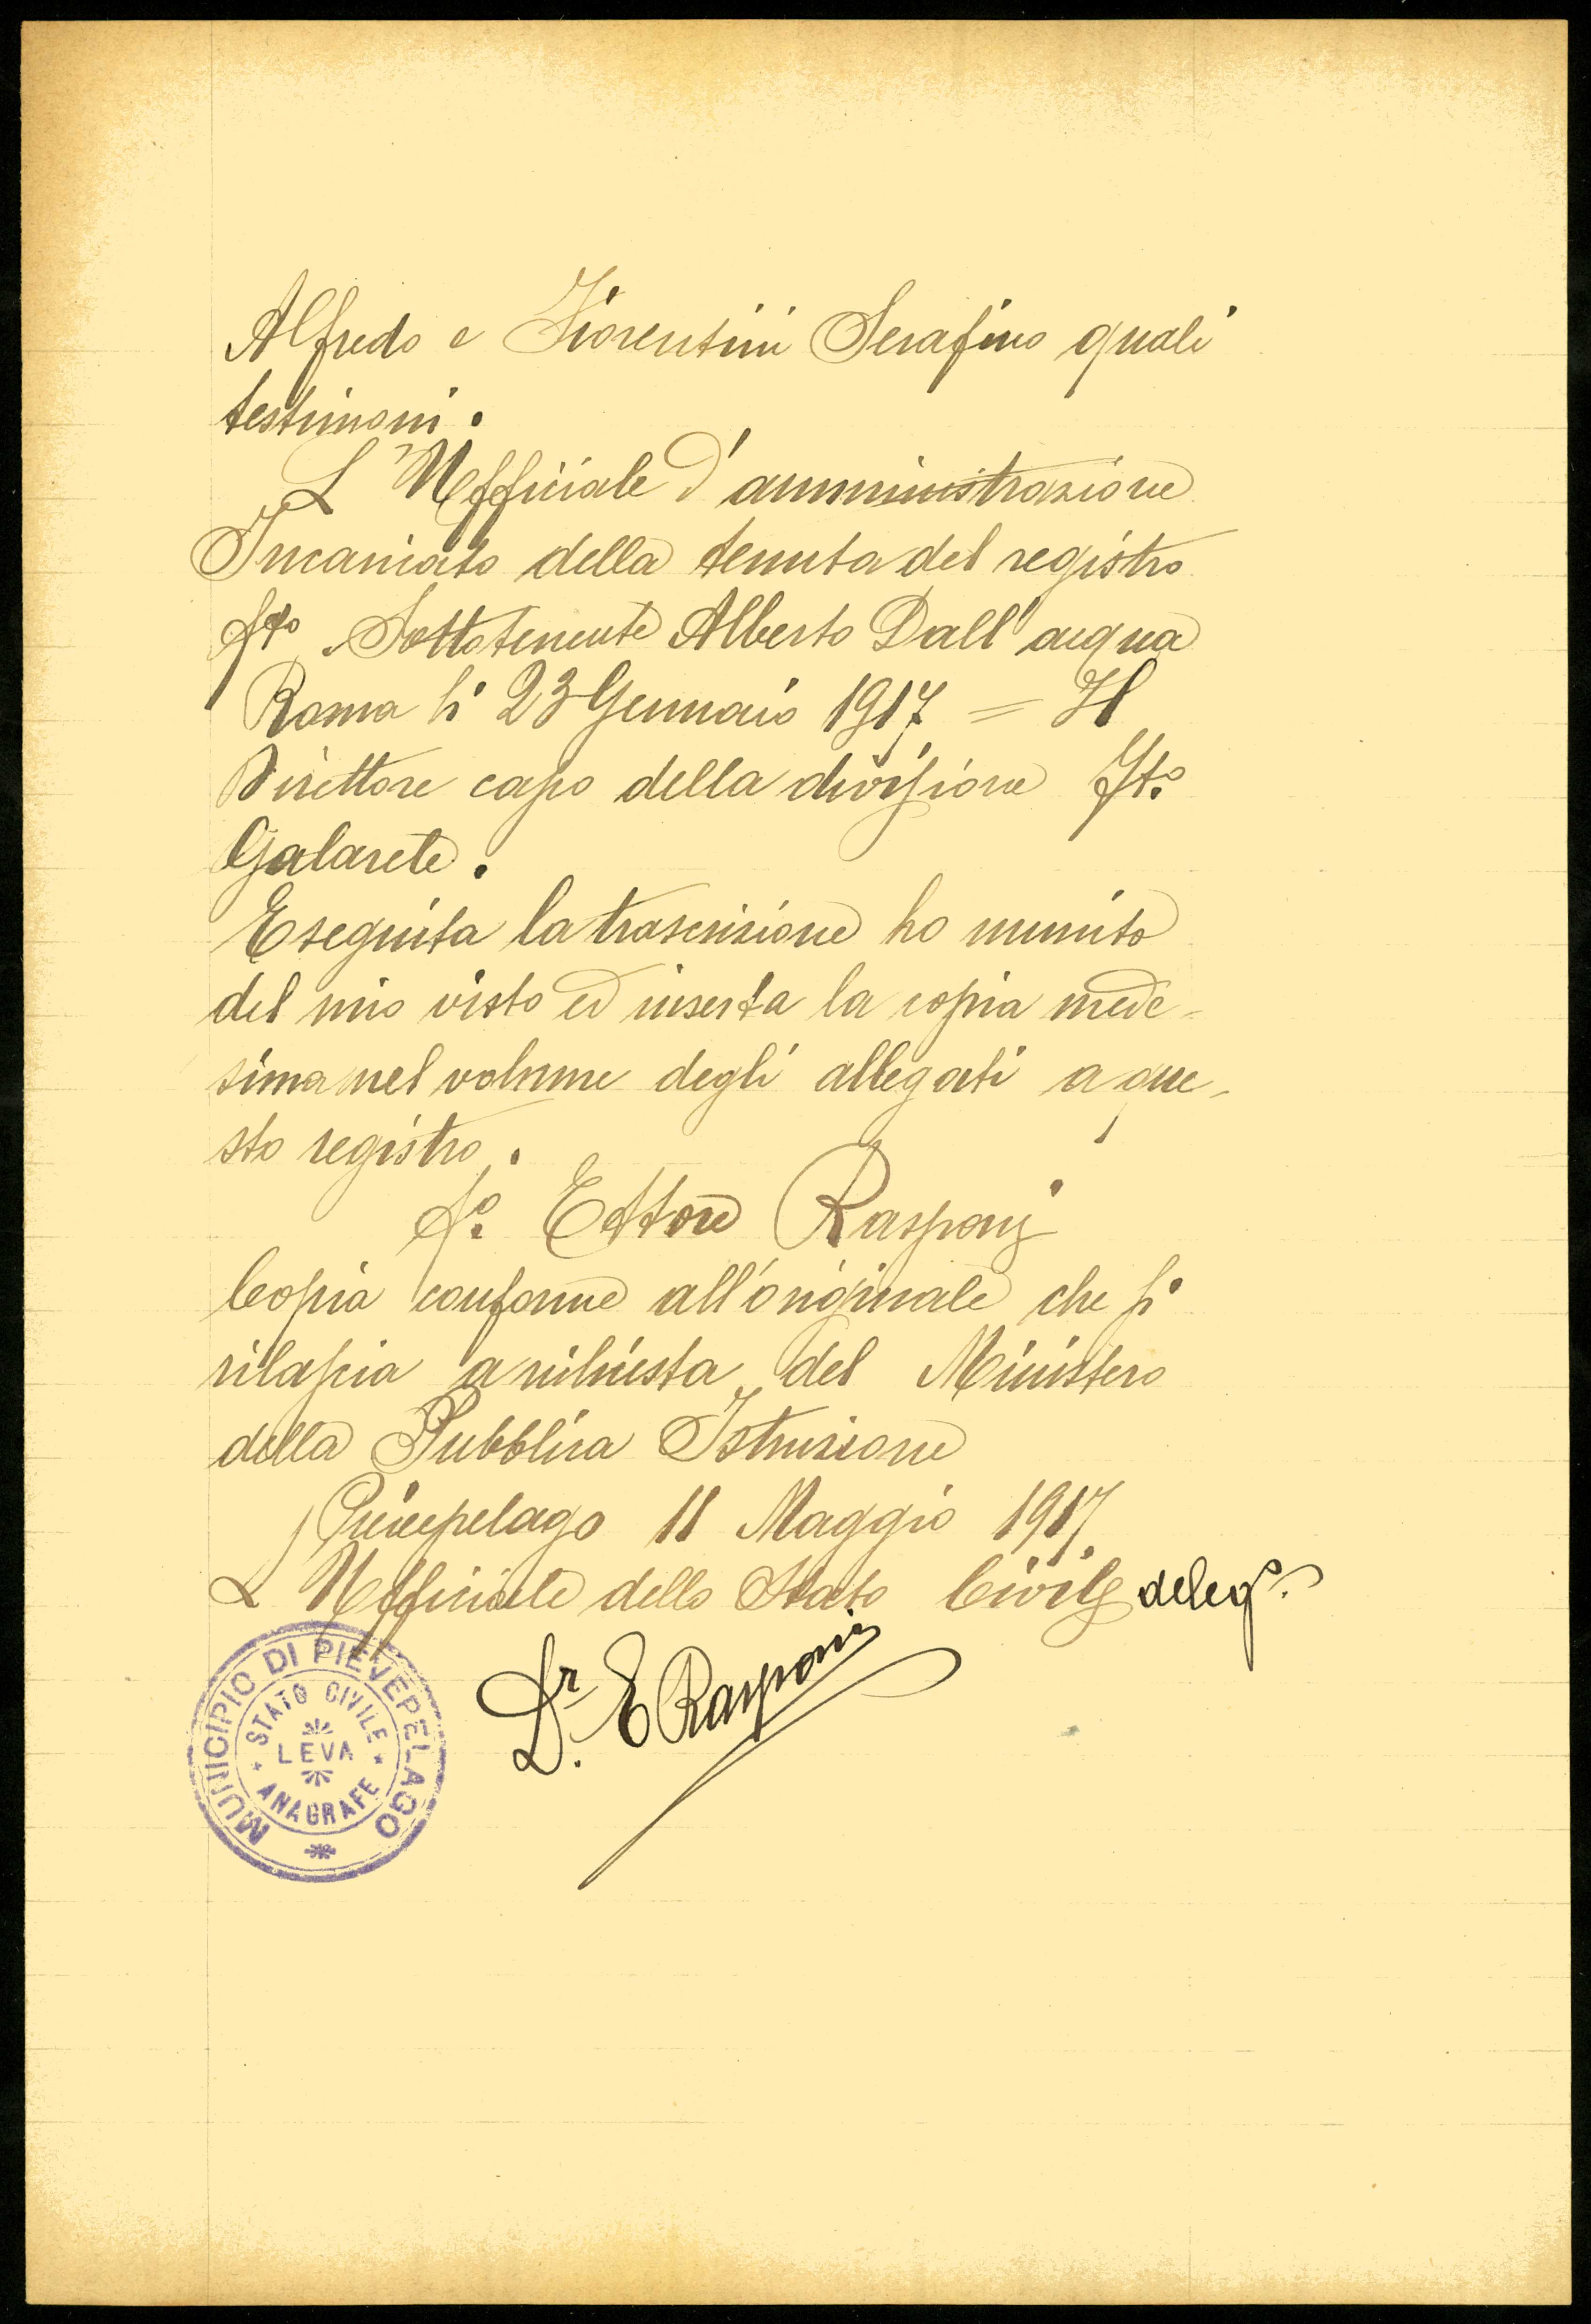 Alfredo e Fiorentini Serafino quali
testimoni.
L'Ufficiale d'amministrazione
Incaricato della tenuta del registro
fto Sottotenente Alberto Dall'acqua
Roma li 23 Gennaio 1917 = Il
Direttore capo della divisione fto
Galarete.
Eseguita la trascrizione ho munito
del mio visto ed inserta la copia mede-
sima nel volume degli allegati a que-
sto registro.
fo. Ettore Rasponi
Copia conforme all'originale che si
rilascia a richiesta del Ministero
della Pubblica Istruzione
Pievepelago 11 Maggio 1917
L'Ufficiale dello Stato Civile delego.
Dr. E Rasponi
MUNICIPIO DI PIEVEPELAGO
STATO CIVILE
LEVA
ANAGRAFE